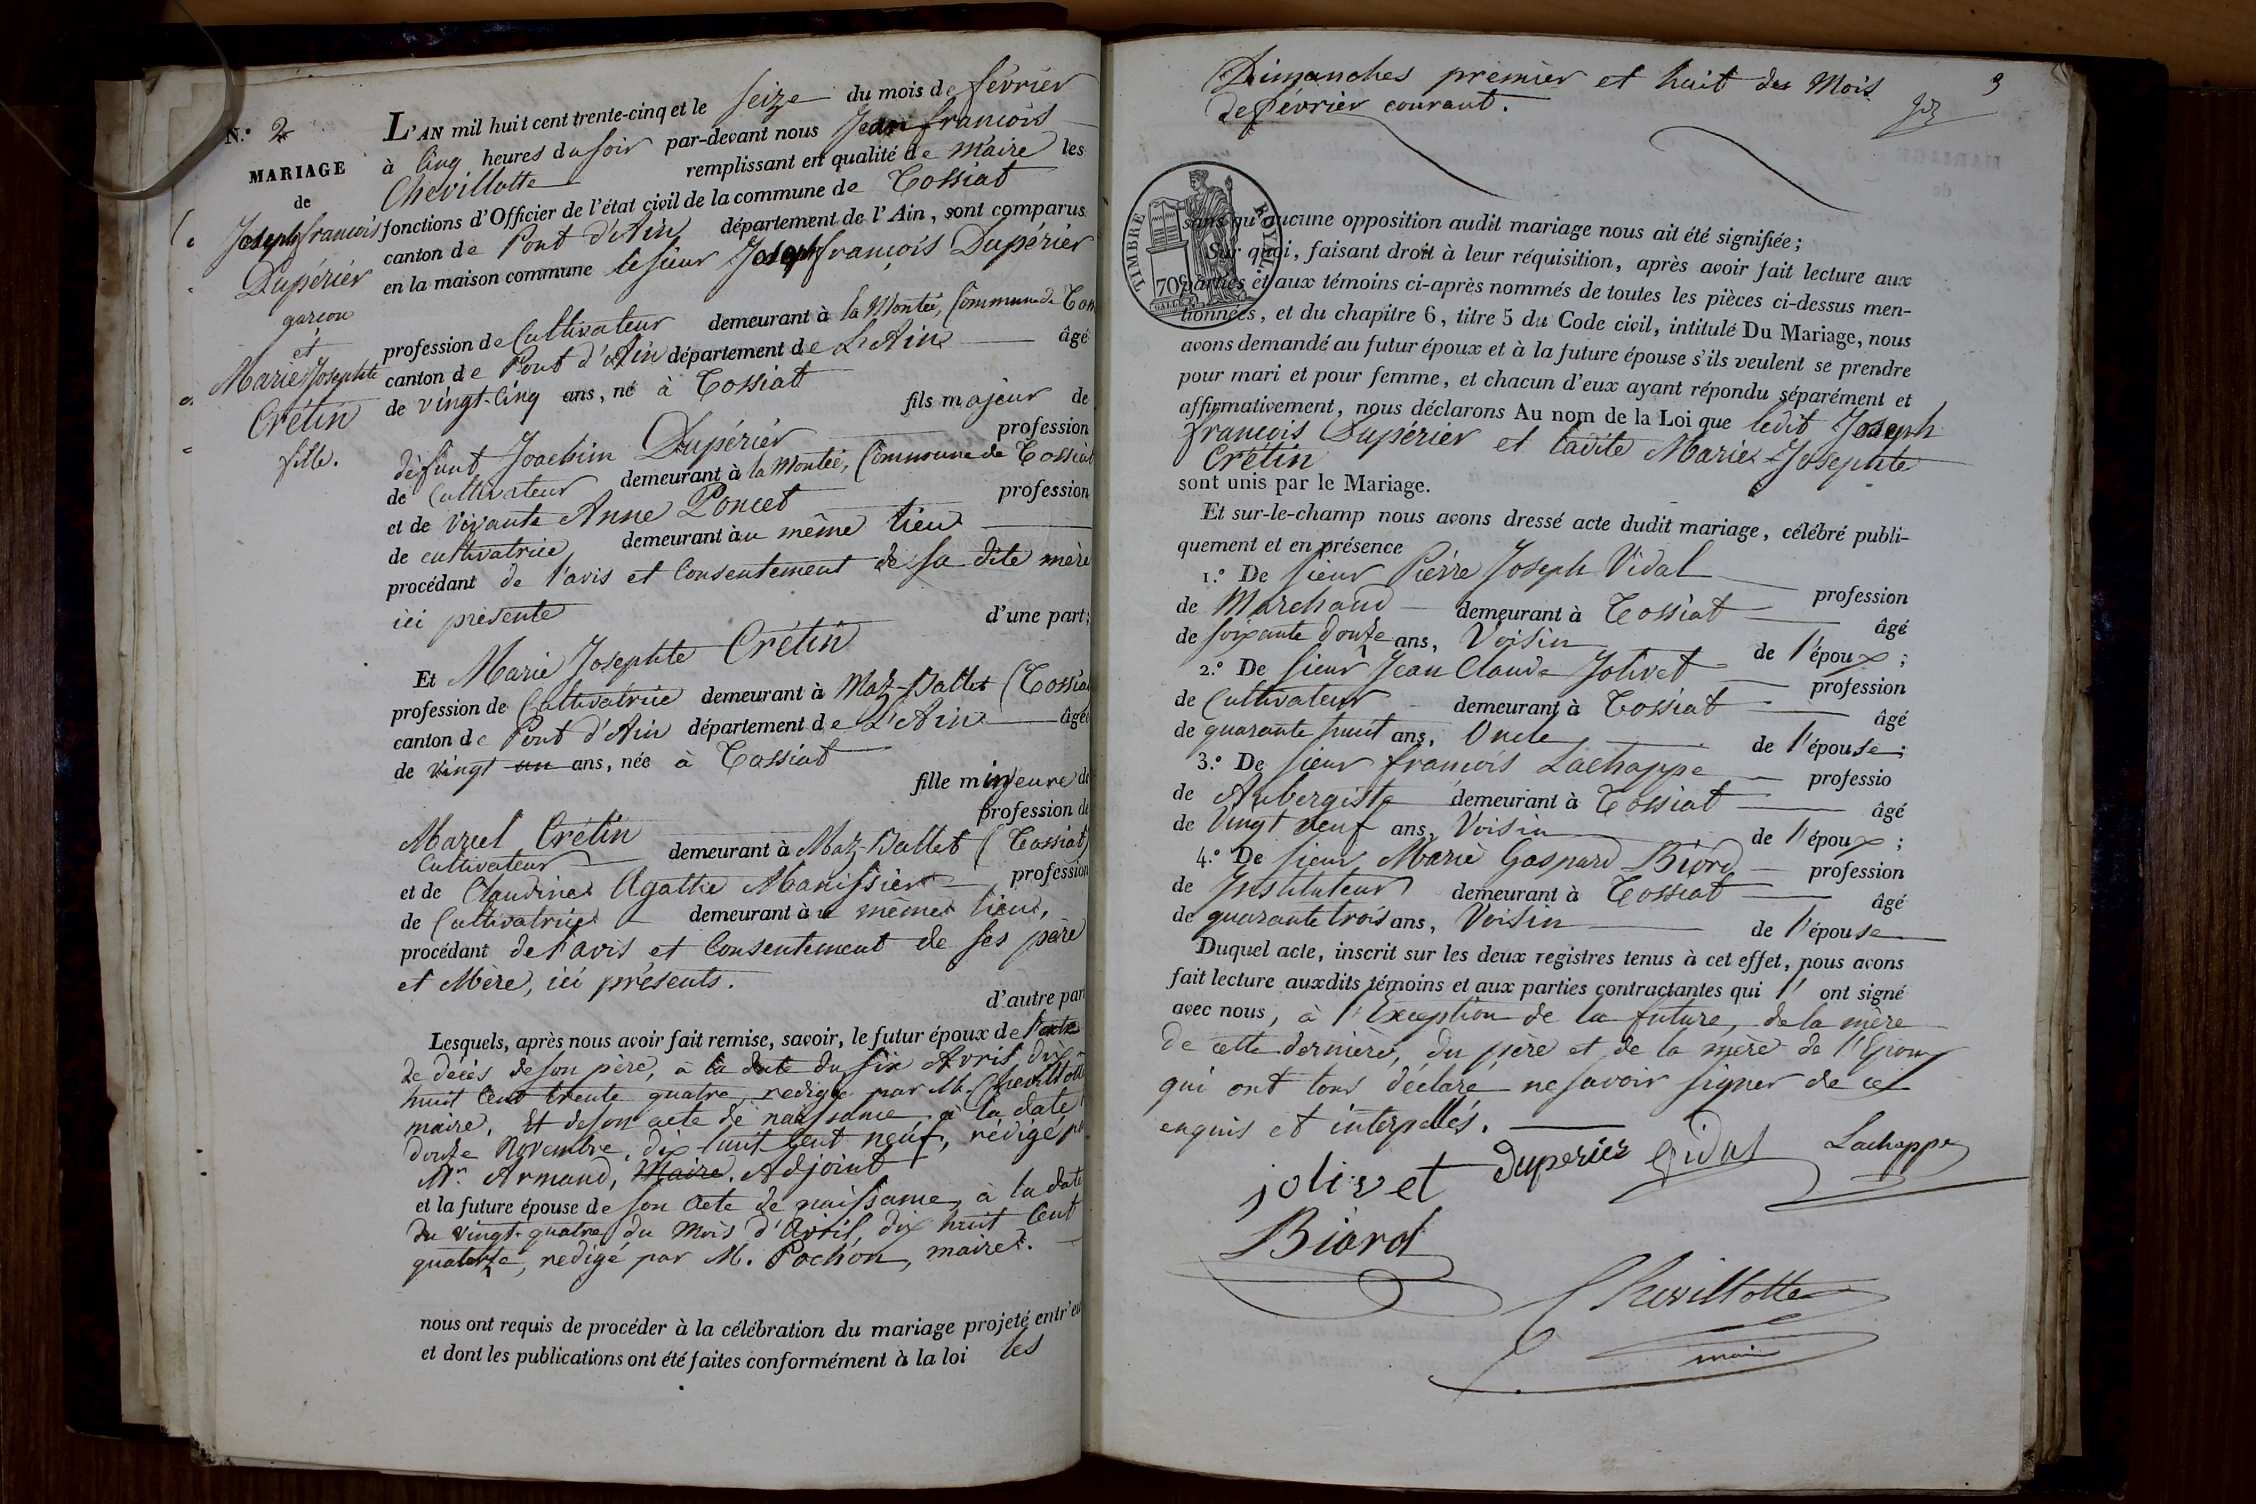 N.° 2
MARIAGE
de
Joseph françois
Dupérier
garçon
et
Marie Josephte
Crétin
fille.
L'AN mil huit cent trente-cinq et le seize du mois de février
à Cinq heures du soir par-devant nous Jean francois
Chevillotte remplissant en qualité de maire les
fonctions d'Officier de l'état civil de la commune de Tossiat
canton de Pont d'Ain département de l'Ain, sont comparus
en la maison commune le sieur Joseph françois Dupérier
profession de Cultivateur demeurant à la Montée, Commune de Toss
canton de Pont d'Ain département de L'Ain âgé
de vingt-Cinq ans, né à Tossiat
fils majeur de
défunt Joachim Dupérier profession
de Cultivateur demeurant à la Montée, Commune de Tossiat
et de vivante Anne Poncet profession
de cultivatrice demeurant au même lieu
procédant de l'avis et Consentement de sa dite mère
ici présente d'une part;
Et Marie Josephte Crétin
profession de Cultivatrice demeurant à Maz-Ballet (Tossiat
canton de Pont d'Ain département de L'Ain âgée
de vingt un ans, née à Tossiat
fille mineure de
profession de
Marcel Crétin
Cultivateur demeurant à Maz-Ballet (Tossiat)
et de Claudine Agathe Manissier profession
de Cultivatrice demeurant à u même lieu,
procédant de l'avis et Consentement de ses père
et Mère, ici présents.
d'autre par
Lesquels, après nous avoir fait remise, savoir, le futur époux de l'acte
de décès de son père, à la date du six Avril dix
huit Cent trente quatre, redigé par M. Chevillotte
maire, Et de son acte de naissance à la date
douze Novembre, dix huit Cent neuf, rédigé p
Mr. Armand, Maire, Adjoint
et la future épouse de son Acte de naissance, à la date
du vingt-quatre du Mois d'Avril, dix huit Cent
quatorze, redigé par M. Pochon, maire.
nous ont requis de procéder à la célébration du mariage projeté entr'eux
et dont les publications ont été faites conformément à la loi les
3
Dimanches premier et huit des Mois
de février courant.
TIMBRE ROYAL
70c
sans qu'aucune opposition audit mariage nous ait été signifiée;
Sur quoi, faisant droit à leur réquisition, après avoir fait lecture aux
parties et aux témoins ci-après nommés de toutes les pièces ci-dessus men-
tionnées, et du chapitre 6, titre 5 du Code civil, intitulé Du Mariage, nous
avons demandé au futur époux et à la future épouse s'ils veulent se prendre
pour mari et pour femme, et chacun d'eux ayant répondu séparément et
affirmativement, nous déclarons Au nom de la Loi que ledit Joseph
françois Dupérier et ladite Marie Josephte
Crétin
sont unis par le Mariage.
Et sur-le-champ nous avons dressé acte dudit mariage, célébré publi-
quement et en présence
1.° De sieur Pierre Joseph Vidal profession
de Marchand demeurant à Tossiat âgé
de soixante douze ans, Voisin de l'époux;
2.° De sieur Jean Claude Jolivet profession
de Cultivateur demeurant à Tossiat âgé
de quarante huit ans, Oncle de l'épouse;
3.° De sieur françois Lachappe professio
de Aubergiste demeurant à Tossiat âgé
de Vingt neuf ans, Voisin de l'époux;
4.° De sieur Marie Gaspard Biord profession
de Instituteur demeurant à Tossiat âgé
de quarante trois ans, Voisin de l'épouse
Duquel acte, inscrit sur les deux registres tenus à cet effet, nous avons
fait lecture auxdits témoins et aux parties contractantes qui l' ont signé
avec nous, à l'Exception de la future, de la mère
de cette dernière, du père et de la mère de l'Epoux
qui ont tous déclaré ne savoir signer de ce
enquis et interpellés.
jolivet duperier Vidal Lachappe
Biord
Chevillotte
maire